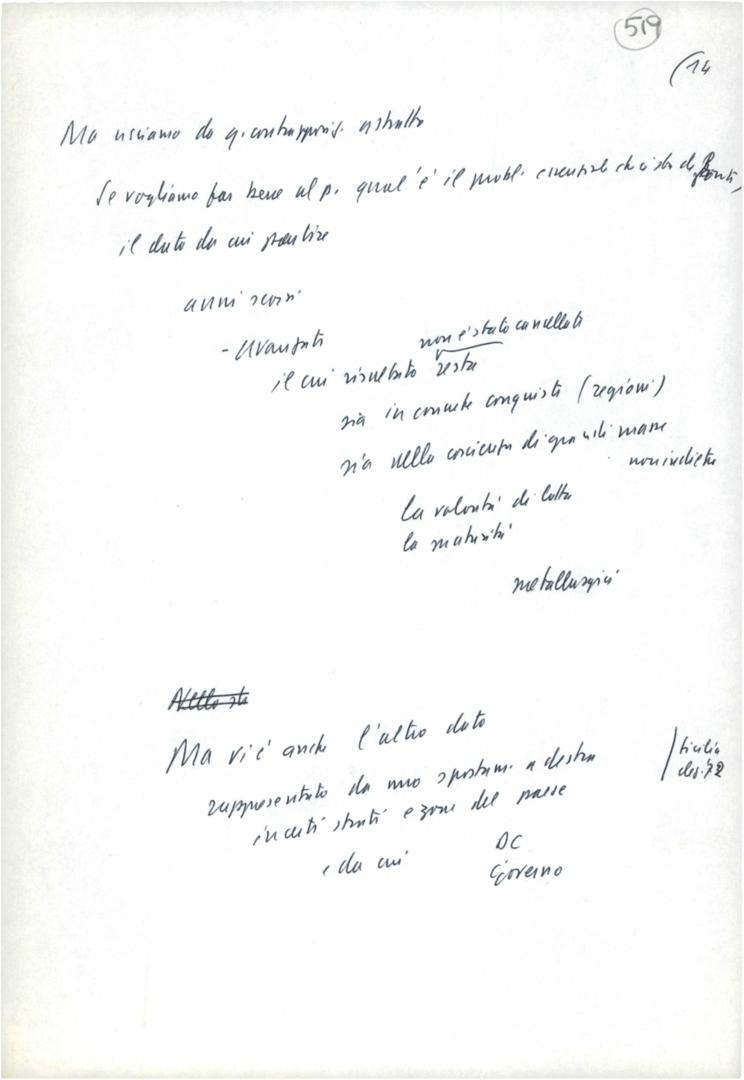 519
(14
Ma usciamo da q. contrapposiz. astratta
Se vogliamo far bene al p. qual'è il probl. essenziale che ci sta di fronte,
il dato da cui partire
anni scorsi
- avanzati
non è stato cancellato
il cui risultato resta
sia in concrete conquiste (regioni)
sia nella coscienza di grandi masse
non indietro
la volontà di lotta
la maturità
metallurgici
Nello st
Ma vi è anche l'altro dato
/ Sicilia
rappresentato da uno spostam. a destra
elez. 72
in certi strati e zone del paese
e da cui
DC
Governo